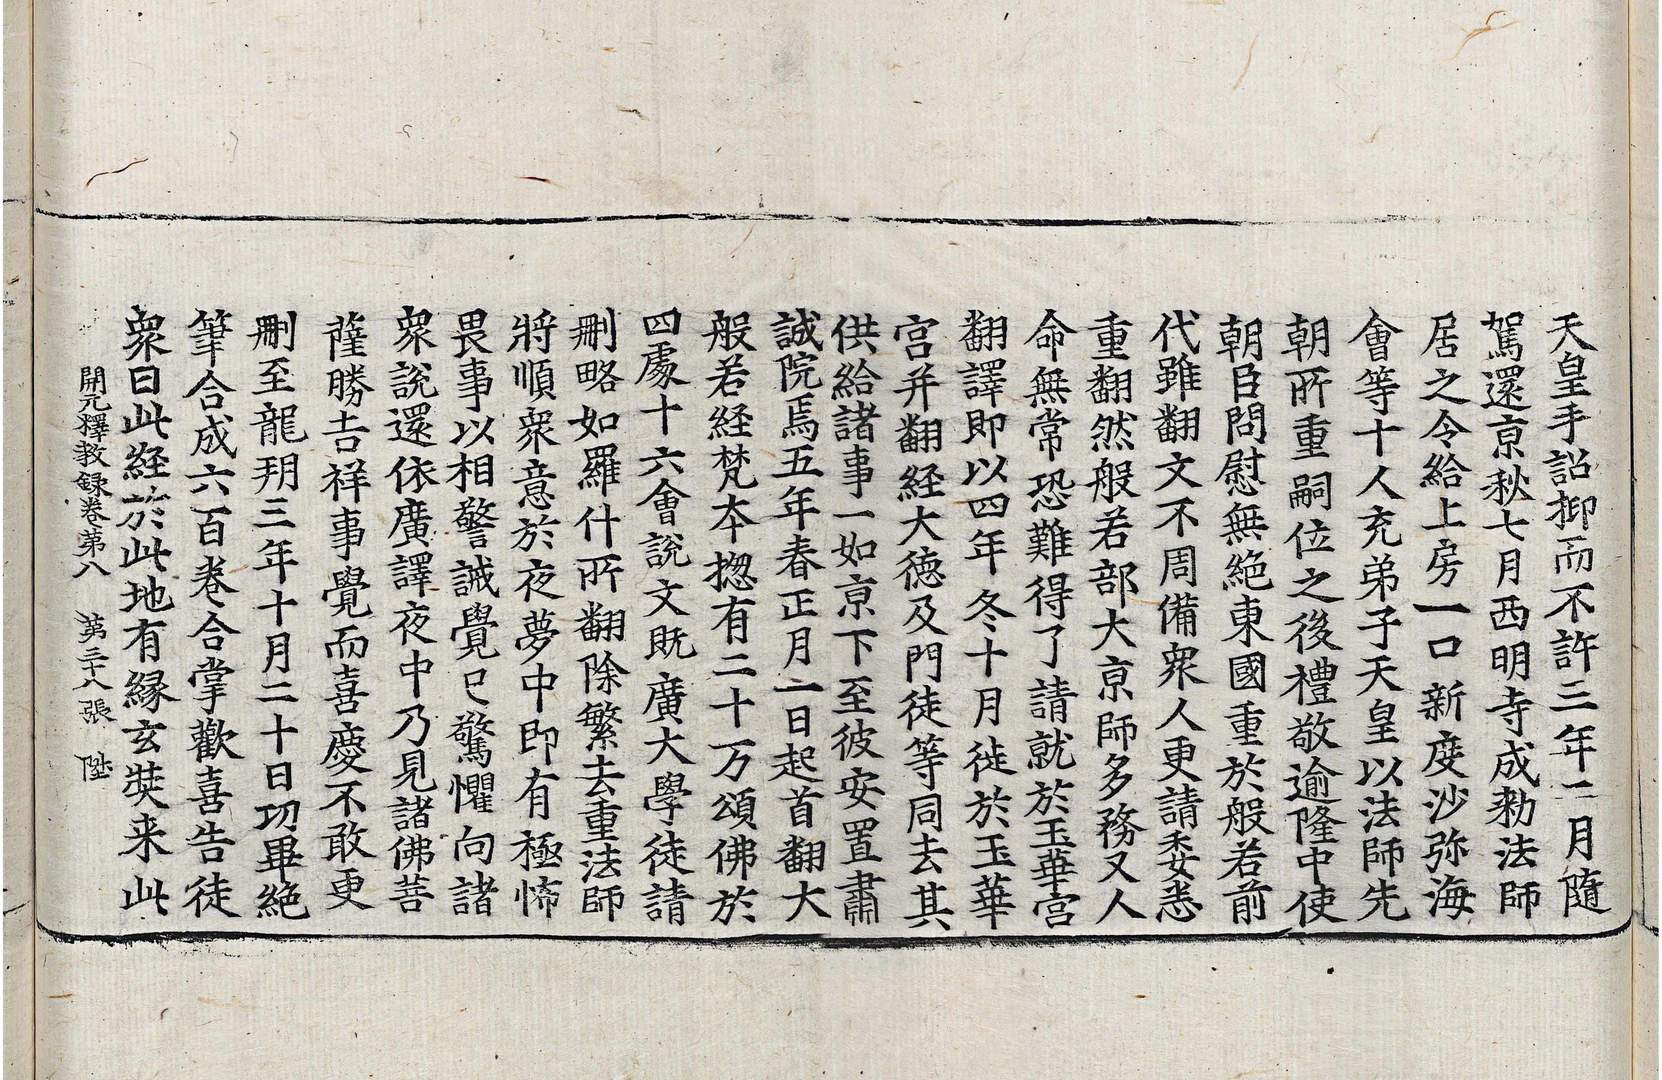 天皇手詔抑而不許三年二月隨
駕還京秋七月西明寺成勑法師
居之令給上房一口新度沙弥海
會等十人充弟子天皇以法師先
朝所重嗣位之後禮敬逾隆中使
朝臣問慰無絶東國重於般若前
代雖翻文不周備衆人更請委悉
重翻然般若部大京師多務又人
命無常恐難得了請就於玉華宮
翻譯即以四年冬十月徙於玉華
宮并翻経大德及門徒等同去其
供給諸事一如京下至彼安置肅
誠院焉五年春正月一日起首翻大
般若経梵本揔有二十万頌佛於
四處十六會說文既廣大學徒請
刪略如羅什所翻除繁去重法師
將順衆意於夜夢中即有極怖
畏事以相警誡覺已驚懼向諸
衆說還依廣譯夜中乃見諸佛菩
薩勝吉祥事覺而喜慶不敢更
刪至龍朔三年十月二十日功畢絶
筆合成六百卷合掌歡喜告徒
衆曰此経於此地有緣玄奘来此
開元釋教録卷第八　第三十八張　陞